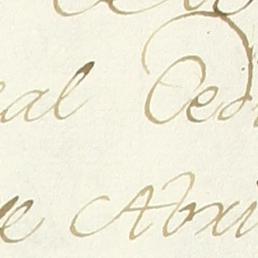 eal Ced
e Abri